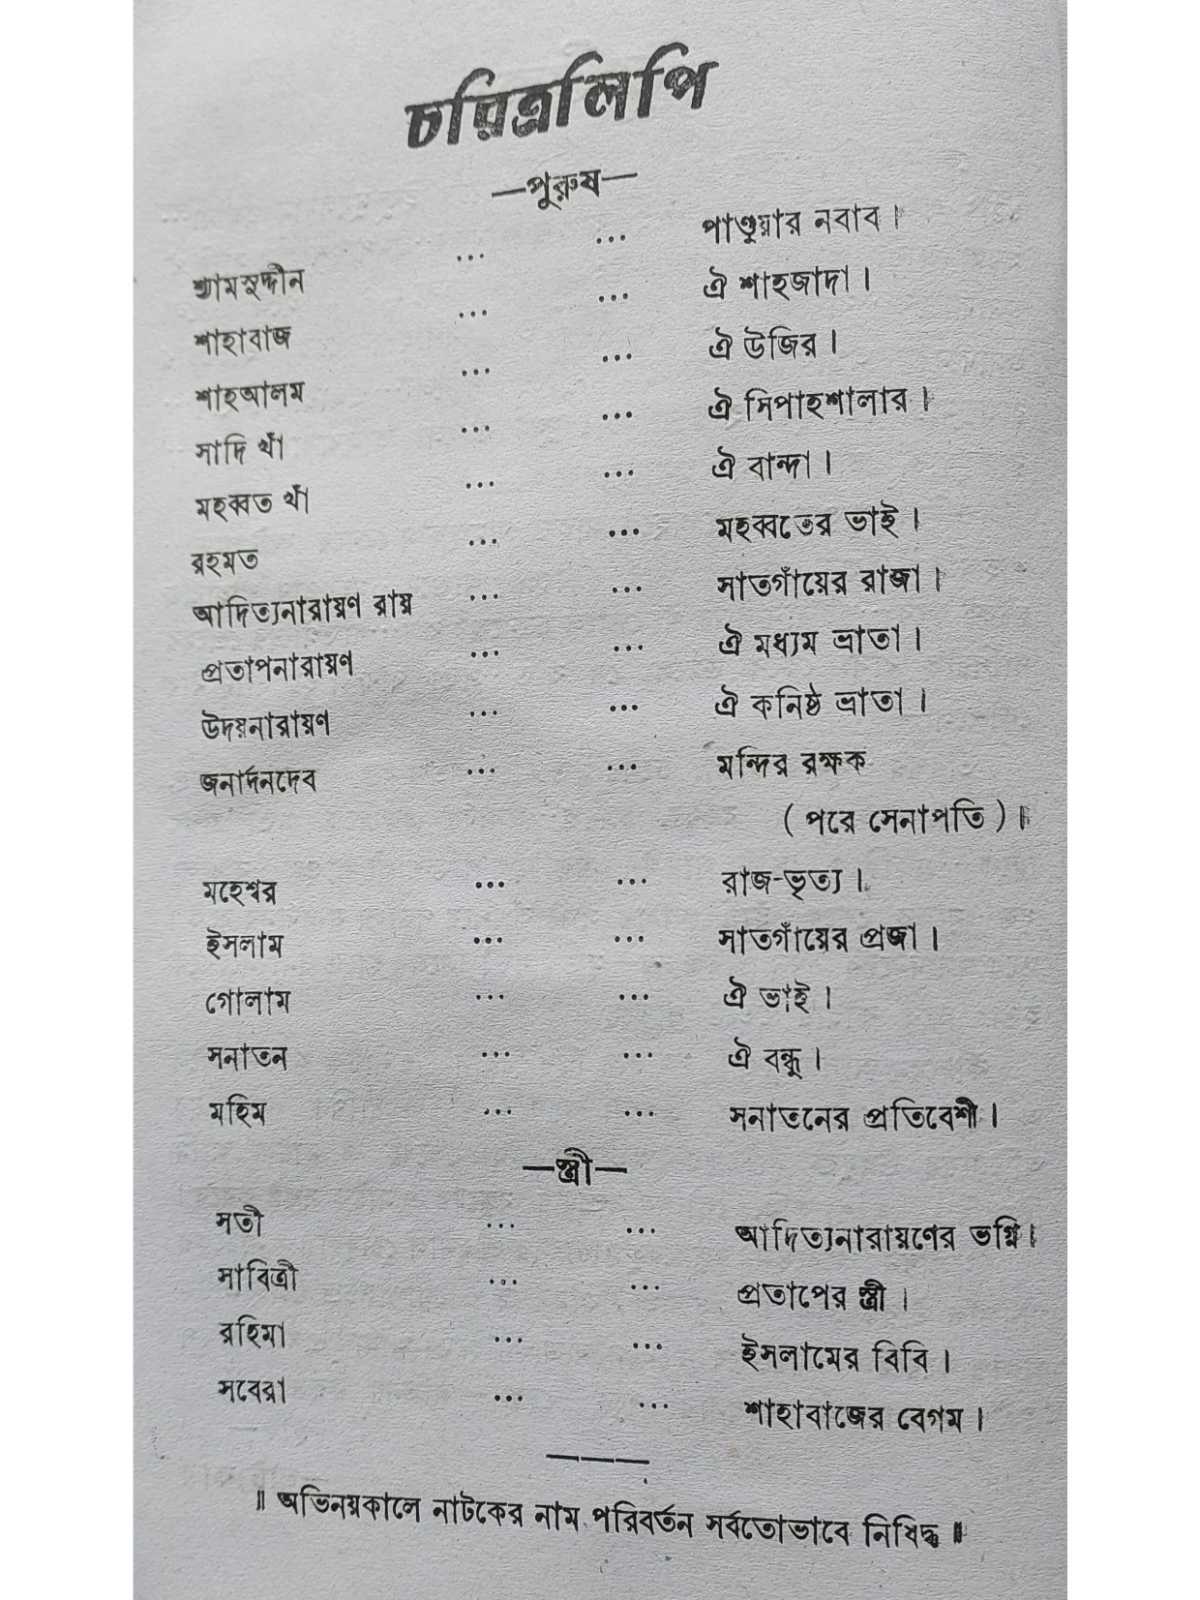 চরিত্রলিপি
—পুরুষ—
শ্যামসুদ্দীন ... ... পাণ্ডুয়ার নবাব।
শাহাবাজ ... ... ঐ শাহজাদা।
শাহআলম ... ... ঐ উজির।
সাদি খাঁ ... ... ঐ সিপাহশালার।
মহব্বত খাঁ ... ... ঐ বান্দা।
রহমত ... ... মহব্বতের ভাই।
আদিত্যনারায়ণ রায় ... ... সাতগাঁয়ের রাজা।
প্রতাপনারায়ণ ... ... ঐ মধ্যম ভ্রাতা।
উদয়নারায়ণ ... ... ঐ কনিষ্ঠ ভ্রাতা।
জনার্দনদেব ... ... মন্দির রক্ষক
(পরে সেনাপতি)।
মহেশ্বর ... ... রাজ-ভৃত্য।
ইসলাম ... ... সাতগাঁয়ের প্রজা।
গোলাম ... ... ঐ ভাই।
সনাতন ... ... ঐ বন্ধু।
মহিম ... ... সনাতনের প্রতিবেশী।
—স্ত্রী—
সতী ... ... আদিত্যনারায়ণের ভগ্নি।
সাবিত্রী ... ... প্রতাপের স্ত্রী।
রহিমা ... ... ইসলামের বিবি।
সবেরা ... ... শাহাবাজের বেগম।
॥ অভিনয়কালে নাটকের নাম পরিবর্তন সর্বতোভাবে নিষিদ্ধ ॥